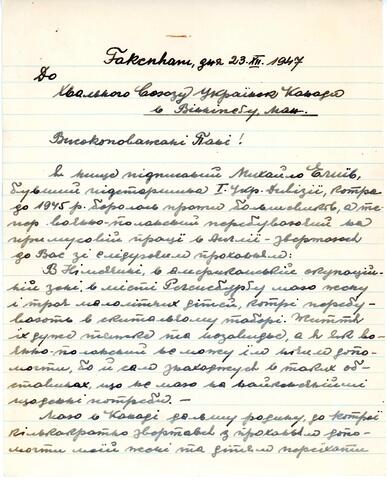 Fakenham, дня 23. XII. 1947
До
Хвального Союзу Українок Канади
в Вінніпегу, Ман.
Високоповажані Пані!
Я нище підписаний Михайло
бувший підстаршина І. Укр. Дивізії, котра
до 1945 р. боролась проти большевиків, а те-
пер воєнно-полонений перебуваючий на
примусовій праці в Англії – звертаюсь
до Вас зі слідуючим проханням:
В Німеччині, в американській окупацій-
ній зоні, в місті Регенсбурзі маю жену
і троє малолітних дітей, котрі перебу-
вають в скитальчому таборі. Життя
їх дуже тяжке та незавидне, а я як во-
єнно-полонений не можу їм нічого допо-
могти, бо й сам знаходжусь в таких об-
ставинах, що не маю на найконечніщі
щоденні потреби. –
Маю в Канаді дальшу родину, до котрої
кількакратно звертався з проханням допо-
могти моїй жені та дітям переїхати